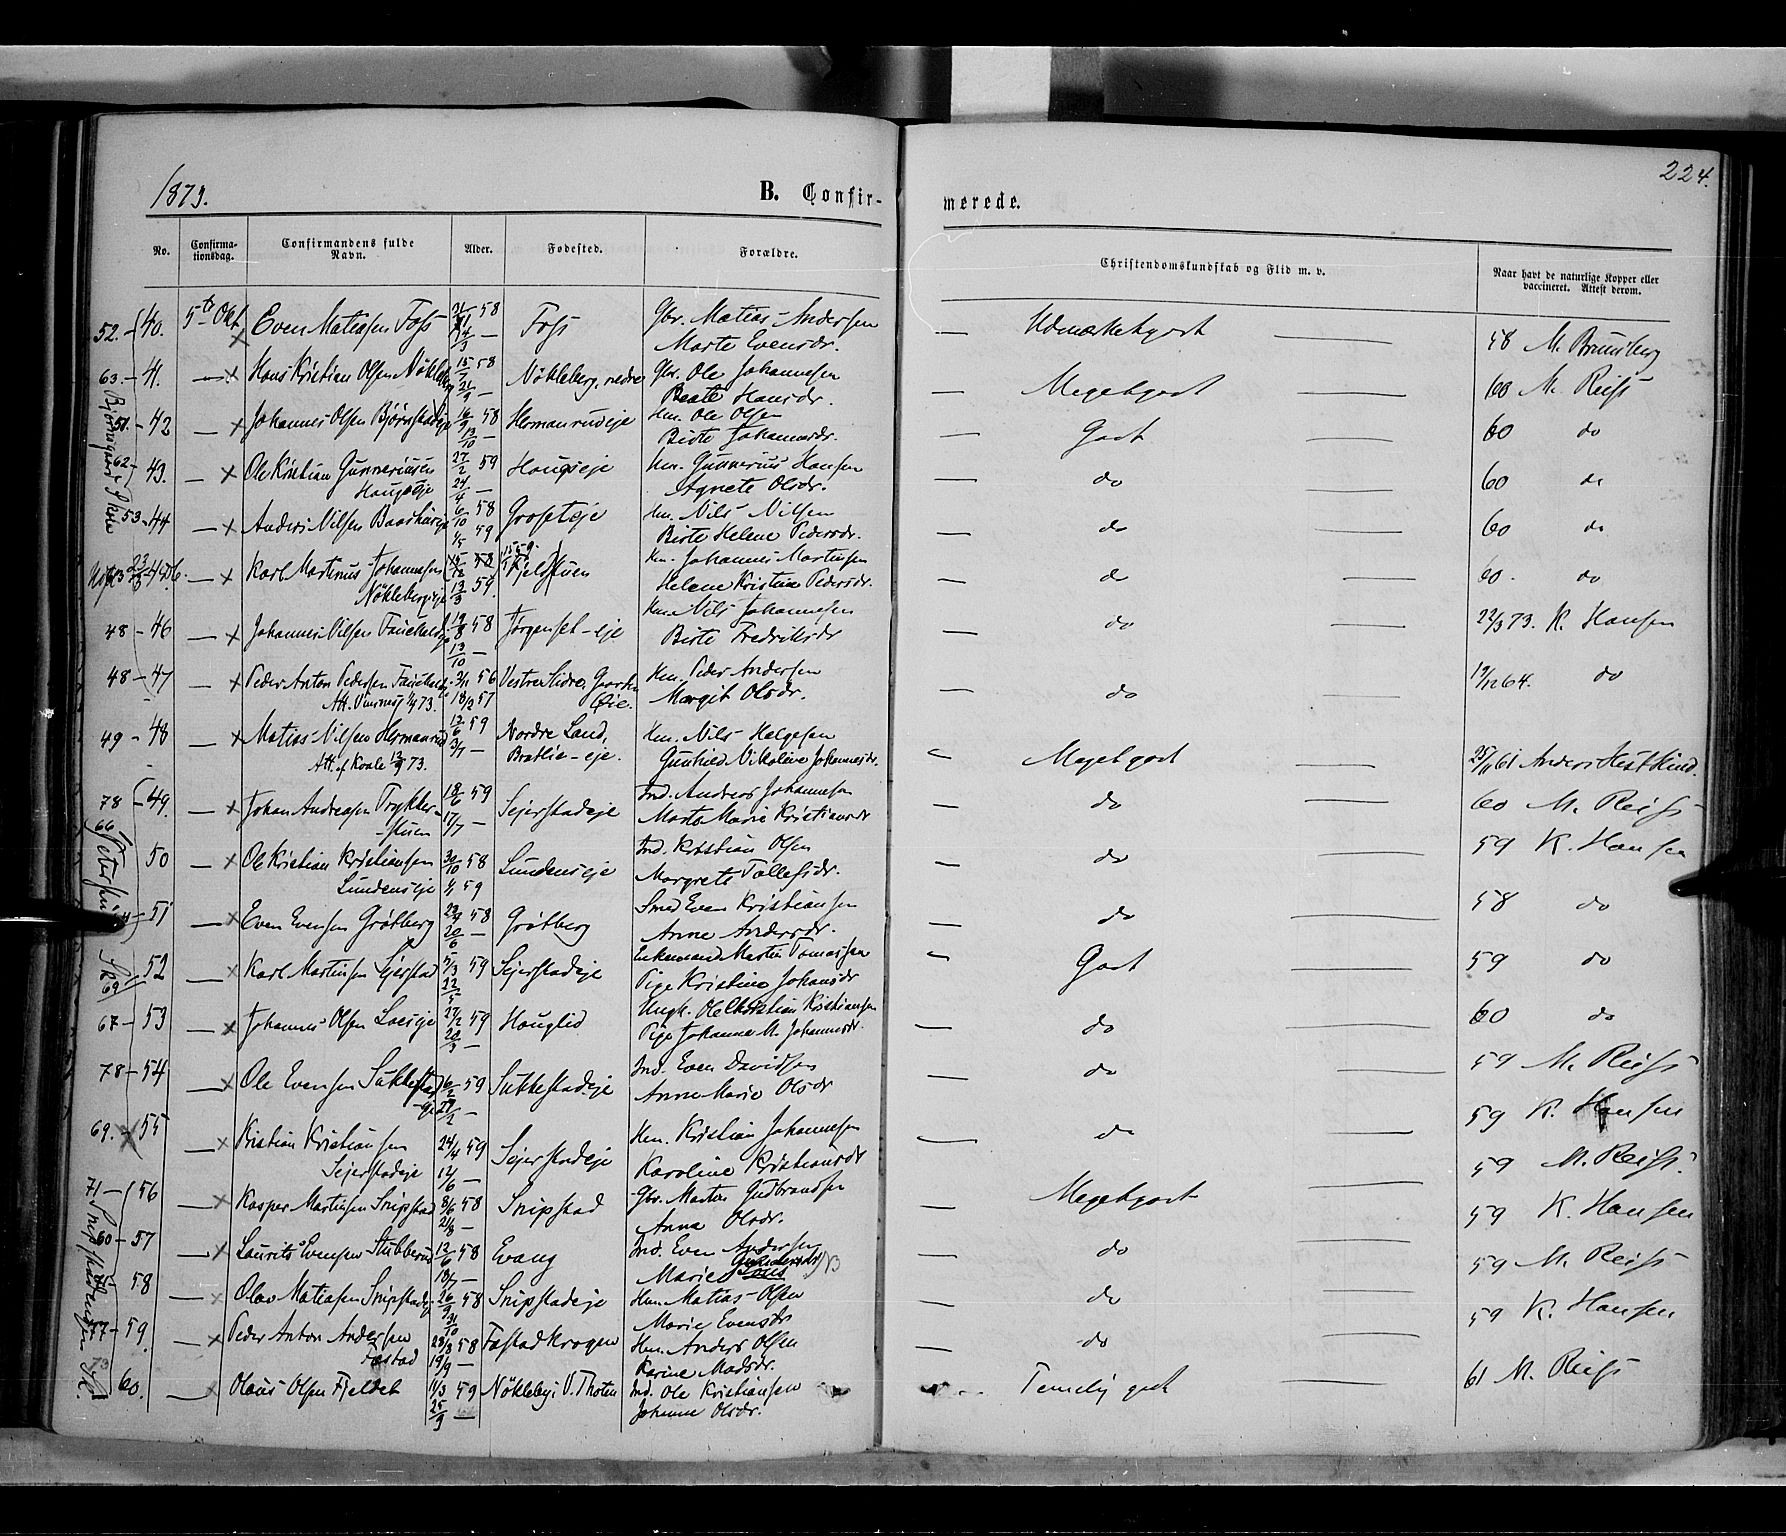 1873.
B. Confir-
merede.
224.
No.
Confirma-
tionsdag.
Confirmandens fulde
Navn.
Alder.
Fødested.
Forældre.
Christendomskundskab og Flid m. v.
Naar havt de naturlige Kopper eller
vaccineret. Attest derom.
52. - 40. 5te Okt. Even Matiasen Foss 58 Foss Gbr. Matias Andersen
Marte Evensdr.
Udmærketgodt 58 M. Brunsberg
63. - 41. Hans Kristian Olsen Nökleberg 58 Nökleberg, nedre Gbr. Ole Johannesen
Beate Hansdr.
Megetgodt 60 M. Reiss
51. - 42 Johannes Olsen 16/9 58 Hermanrudeje Hm. Ole Olsen
13/10 - Birte Johannesdr.
Godt 60 do
62 - 43. Ole Kristian Gunneriusen 27/2 59 Haugseje Hm. Gunnerius Hansen
Haugseje 24/4 - Agnete Olsdr.
do 60 do
53. - 44 Anders Nilsen 6/10 58 Hm. Nils Nilsen
59 Birte Helene Pedersdr.
do 60 do
Karl Martinus Johannesen Fjeldstuen Hm. Johannes Martinsen
Nöklebergeje 13/3 59. Helene Kristine Pedersdr.
do 60. do
48 - 46 Johannes Nilsen 19/8 58 Jørgenset-eje Hm. Nils Johannesen
13/10 - Birte Fredriksdr
do 22/3 73. K. Hansen
48 - 47 Peder Anton Pedersen 56 Vestre Slidre Hm. Peder Andersen
57 Øie. Margit Olsdr.
do 19/12 64. do
49 - 48 Matias Nilsen Hermanrud 59 Nordre Land, Hm. Nils Helgesen
3/7 - Bratlie-eje. Gunhild Nikoline Johannesdr.
Megetgodt 61 Anders
78 - 49. Johan Andreasen Trykker- 18/6 59 Sejerstadeje Ind. Andreas Johannesen
stuen 17/7 - Marte Marie Kristiansdr
do 60 M. Reiss
66 50 Ole Kristian Kristiansen 30/10 58 Lundenseje Ind. Kristian Olsen
Lundenseje 1/1 59 Margrete Tollefsdr.
do 59 K. Hansen
51 Even Evensen Grötberg 58 Grötberg Smed Even Kristiansen
20/6 - Anne Andersdr.
do 58 do
69 52 Karl Martinsen Sejerstad 5/3 59 Sejerstadeje Enkemand Martin Tomassen
22/5 Pige Kristine Johansdr
Godt 59 do
67 - 53 Johannes Olsen 59 Hauglid Ungk. Ole Christian Kristiansen
20/3 - Pige Johanne M. Johannesdr.
do 60 do
78 - 54 Ole Evensen Sukkestad 6/2 59 Sukkestadeje Ind. Even Davidsen
-eje - Anne Marie Olsdr
do 59 M. Reiss
69. 55 Kristian Kristiansen 24/4 59 Sejerstadeje Hm. Kristian Johannesen
Sejerstadeje - Karoline Kristiansdr
do 59 K. Hansen
71 - 56 Kasper Martinsen Snipstad 8/6 58 Snipstad Gbr. Martin Gudbrandsen
21/8 - Anna Olsdr.
Megetgodt 59 M. Reiss.
60 - 57 Laurits Evensen Stubberud 12/6 58 Evang Ind. Even Andersen
13/7 - Marie
do 59 K. Hansen
58 Olav Matiasen Snipstadeje 26/9 58 Snipstadeje Hm. Matias Olsen
31/10 Marie Evensdr
do 59 M. Reiss
77 - 59. Peder Anton Andersen 58 Fæstadkrogen Hm. Anders Olsen
Fæstad 19/9 - Karine Madsdr.
do 59 K. Hansen
73 60. Olaus Olsen Fjeldet 1/3 59 Nökleby i V. Thoten Ind. Ole Kristiansen
25/9 - Johanne Olsdr.
Temelig godt 61 M. Reiss